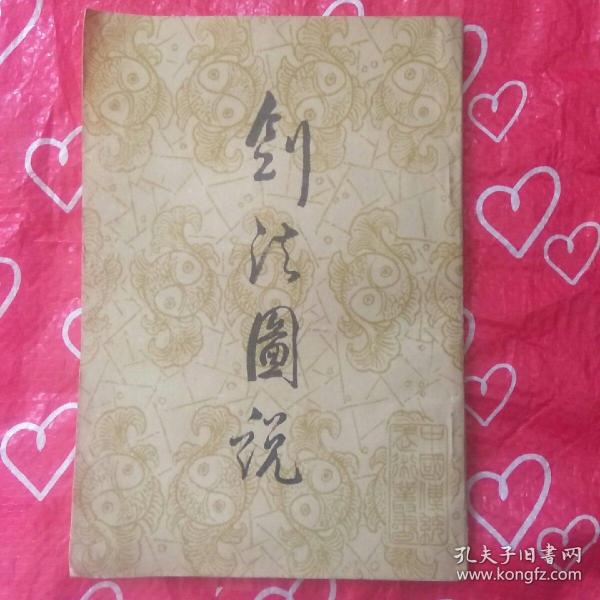 剑法圖说
中國傳統
武術叢書
孔夫子旧書网
www.kongfz.com